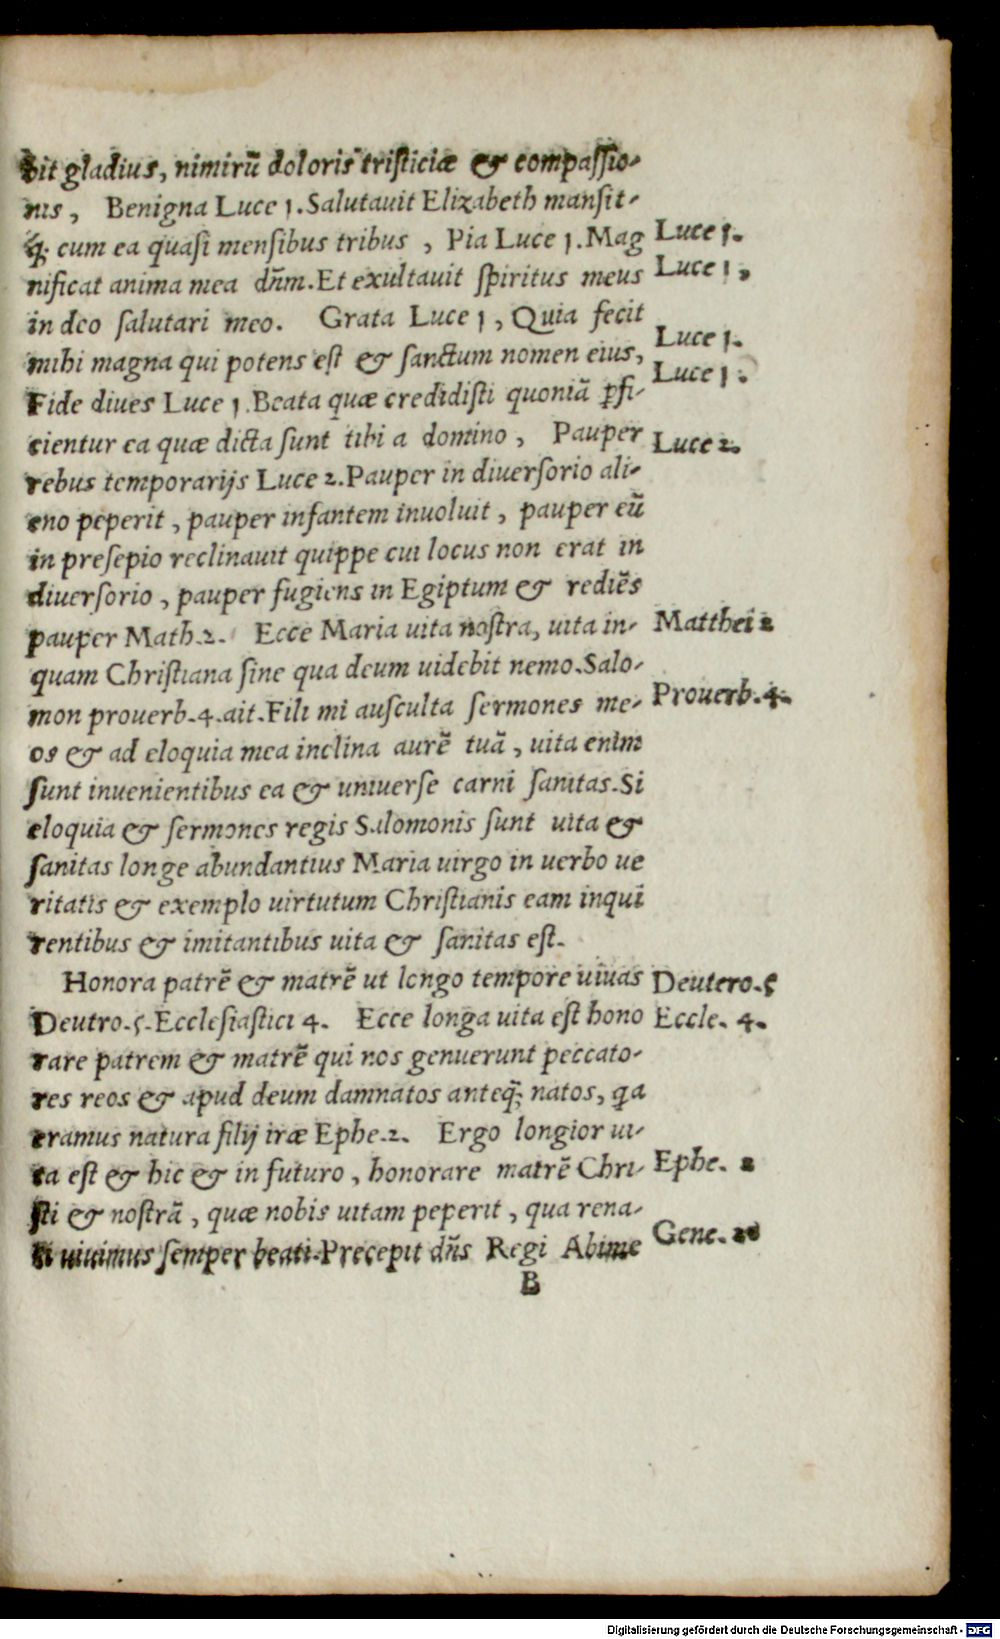 bit gladius, nimirū doloris tristiciæ & compassio-
nis, Benigna Luce 1. Salutauit Elizabeth mansit-
q; cum ea quasi mensibus tribus, Pia Luce 1. Mag
Luce 1.
nificat anima mea dn̄m. Et exultauit spiritus meus
Luce 1,
in deo salutari meo. Grata Luce 1, Quia fecit
mihi magna qui potens est & sanctum nomen eius,
Luce 1.
Fide diues Luce 1. Beata quæ credidisti quoniā ꝑfi-
Luce 1.
cientur ea quæ dicta sunt tibi a domino, Pauper
Luce 2.
rebus temporarijs Luce 2. Pauper in diuersorio ali-
eno peperit, pauper infantem inuoluit, pauper eū
in presepio reclinauit quippe cui locus non erat in
diuersorio, pauper fugiens in Egiptum & rediēs
pauper Math. 2. Ecce Maria uita nostra, uita in-
Matthei 2
quam Christiana sine qua deum uidebit nemo. Salo-
mon prouerb. 4. ait. Fili mi ausculta sermones me-
Prouerb. 4.
os & ad eloquia mea inclina aurē tuā, uita enim
sunt inuenientibus ea & uniuerse carni sanitas. Si
eloquia & sermones regis Salomonis sunt uita &
sanitas longe abundantius Maria uirgo in uerbo ue
ritatis & exemplo uirtutum Christianis eam inqui
rentibus & imitantibus uita & sanitas est.
Honora patrē & matrē ut longo tempore uiuas
Deutero. 5
Deutro. 5. Ecclesiastici 4. Ecce longa uita est hono
Eccle. 4.
rare patrem & matrē qui nos genuerunt peccato-
res reos & apud deum damnatos anteq̄; natos, ꝗa
eramus natura filij iræ Ephe. 2. Ergo longior ui-
ta est & hic & in futuro, honorare matrē Chri-
Ephe. 2
sti & nostrā, quæ nobis uitam peperit, qua rena-
ti uiuimus semper beati. Precepit dn̄s Regi Abime
Gene. 20
B
Digitalisierung gefördert durch die Deutsche Forschungsgemeinschaft - DFG